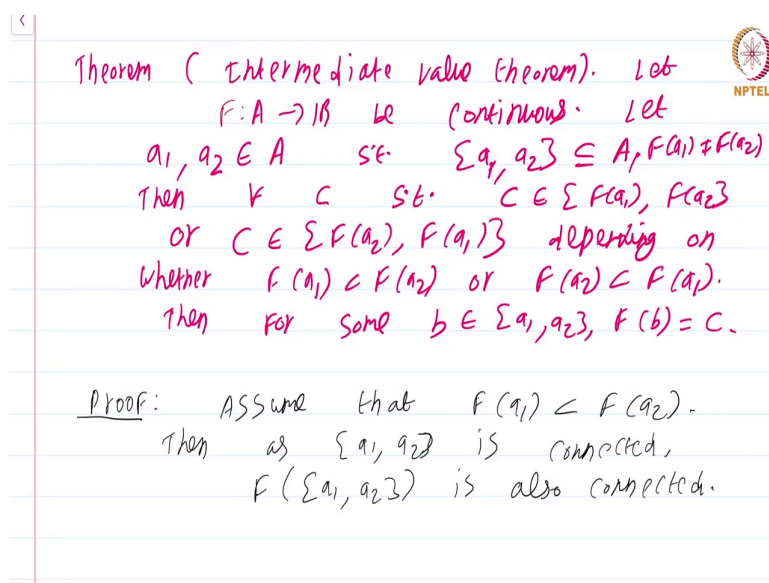 Theorem ( Intermediate value theorem). Let
F: A → ℝ be continuous. Let
a₁, a₂ ∈ A s.t. [a₁, a₂] ⊆ A, F(a₁) ≠ F(a₂)
Then ∀ c s.t. c ∈ [F(a₁), F(a₂)]
or c ∈ [F(a₂), F(a₁)] depending on
whether F(a₁) < F(a₂) or F(a₂) < F(a₁).
Then for some b ∈ [a₁, a₂], F(b) = c.
Proof: Assume that F(a₁) < F(a₂).
Then as [a₁, a₂] is connected,
F([a₁, a₂]) is also connected.
NPTEL